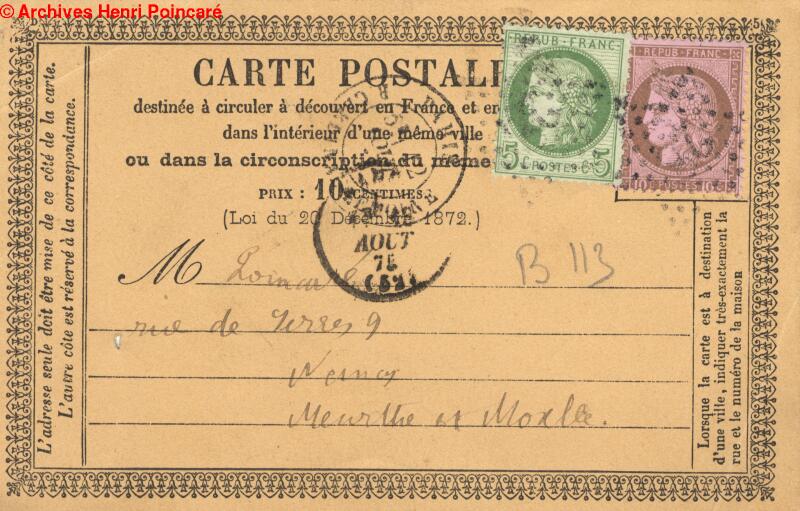 © Archives Henri Poincaré
CARTE POSTALE
destinée à circuler à découvert en France et en
dans l'intérieur d'une même ville
ou dans la circonscription du même
PRIX : 10 CENTIMES.
(Loi du 20 Décembre 1872.)
REPUB FRANC
5 POSTES 5
REPUB FRANC
10 10
AOUT
75
(52)
B 113
M Poincaré
rue de Serres 9
Nancy
Meurthe et Moselle.
L'adresse seule doit être mise de ce côté de la carte.
L'autre côte est réservé à la correspondance.
Lorsque la carte est à destination
d'une ville, indiquer très-exactement la
rue et le numéro de la maison